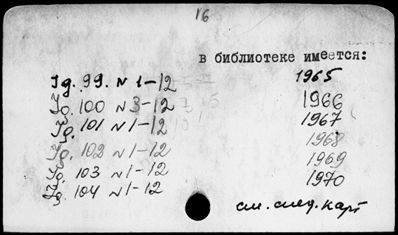 16
в библиотеке имеется:
Jg. 99. N 1-12 1965
Jg. 100 N 3-12 1966
Jg. 101 N 1-12 1967
Jg. 102 N 1-12 1968
Jg. 103 N 1-12 1969
Jg. 104 N 1-12 1970
см. след. карт